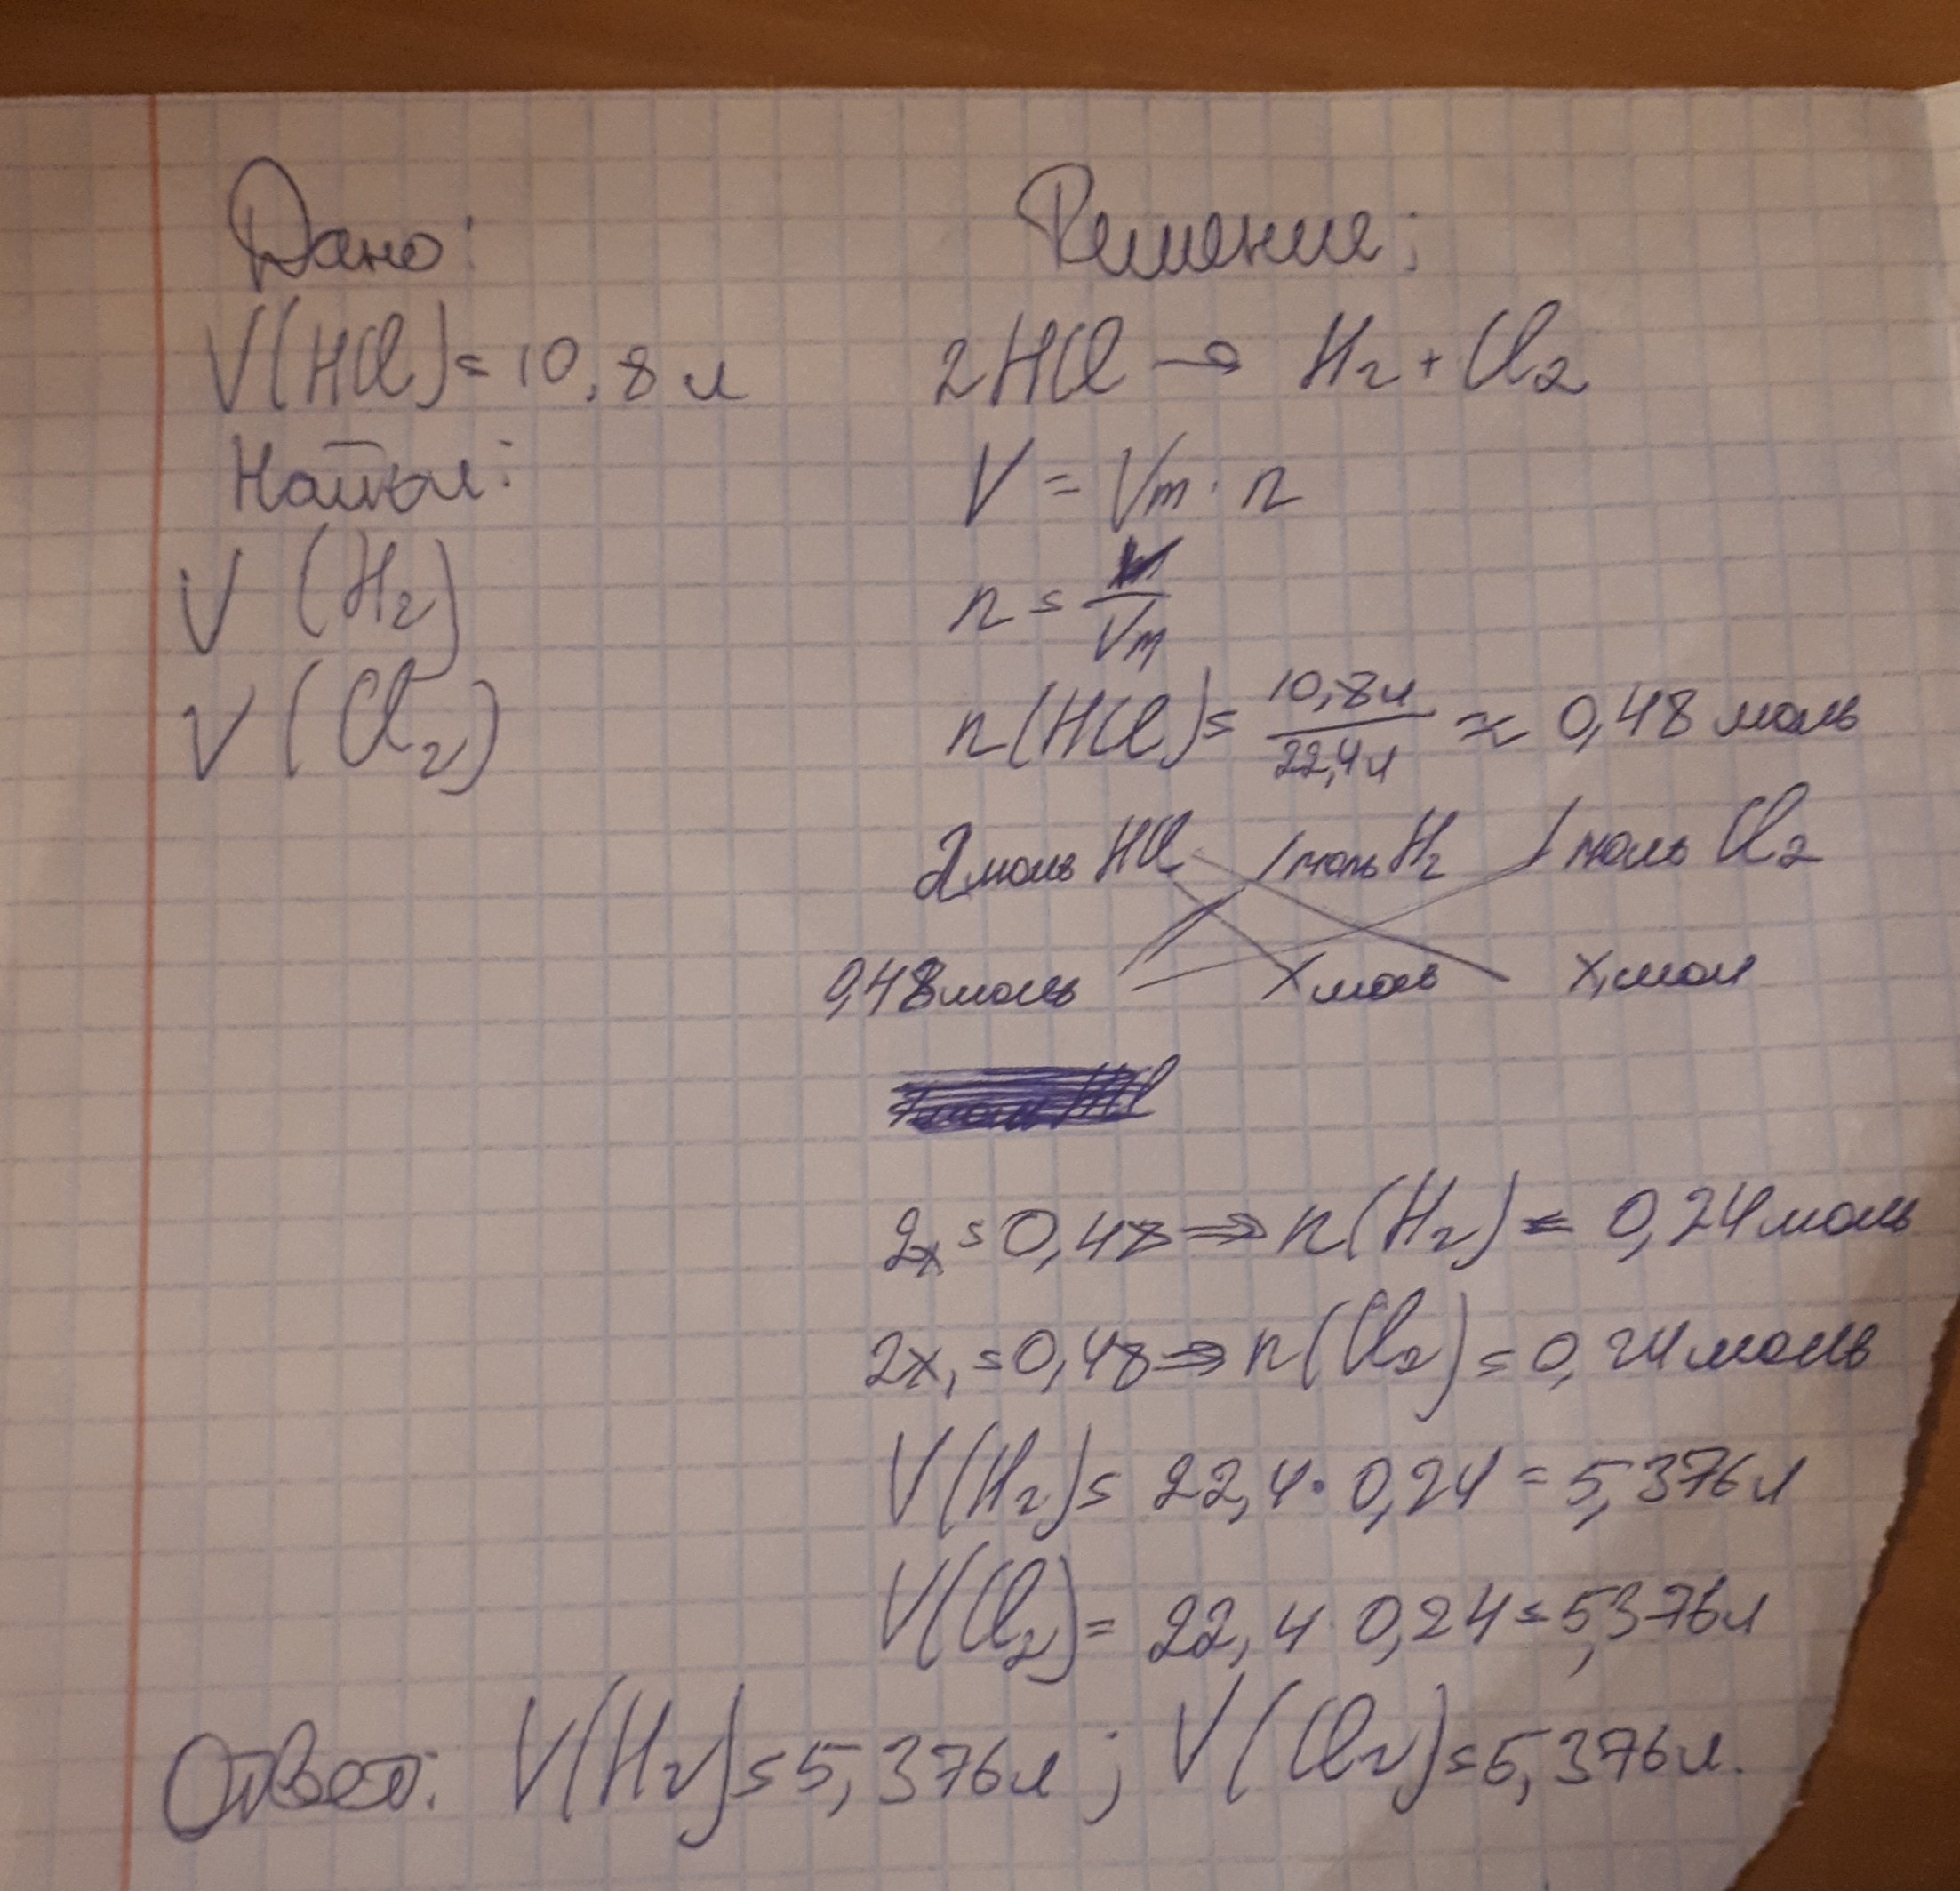 Дано:
V(HCl) = 10,8 л
Найти:
V (H₂)
V (Cl₂)
Решение:
2HCl → H₂ + Cl₂
V = Vm · n
n = V/Vm
n(HCl) = 10,8л/22,4л ≈ 0,48 моль
2 моль HCl 1 моль H₂ 1 моль Cl₂
0,48 моль x моль x₁ мол
2x = 0,48 ⇒ n(H₂) = 0,24 моль
2x₁ = 0,48 ⇒ n(Cl₂) = 0,24 моль
V(H₂) = 22,4 · 0,24 = 5,376 л
V(Cl₂) = 22,4 · 0,24 = 5,376 л
Ответ: V(H₂) = 5,376 л ; V(Cl₂) = 5,376 л.